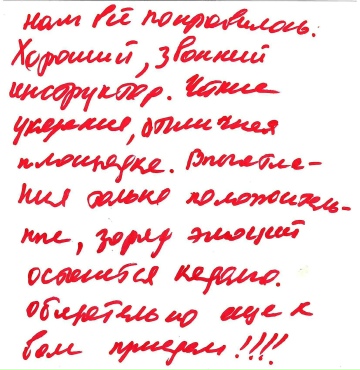 нам всё понравилось.
Хороший, звонкий
инструктор. Чёткие
указания, отличная
площадка. Впечатле-
ния только положитель-
ные, заряд эмоций
останется надолго.
обязательно еще к
вам приедем!!!!